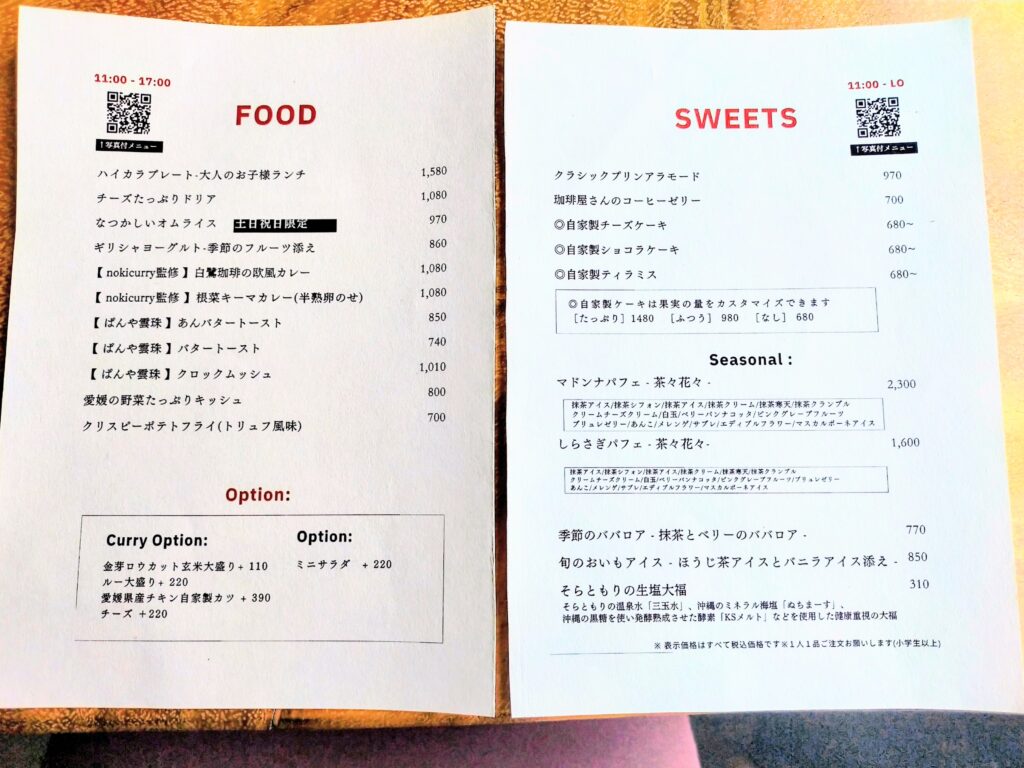 11:00 - 17:00
FOOD
↑写真付メニュー
ハイカラプレート-大人のお子様ランチ 1,580
チーズたっぷりドリア 1,080
なつかしいオムライス 土日祝日限定 970
ギリシャヨーグルト-季節のフルーツ添え 860
【 nokicurry監修 】白鷺珈琲の欧風カレー 1,080
【 nokicurry監修 】根菜キーマカレー(半熟卵のせ) 1,080
【 ぱんや雲珠 】あんバタートースト 850
【 ぱんや雲珠 】バタートースト 740
【 ぱんや雲珠 】クロックムッシュ 1,010
愛媛の野菜たっぷりキッシュ 800
クリスピーポテトフライ(トリュフ風味) 700
Option:
Curry Option:
金芽ロウカット玄米大盛り+ 110
ルー大盛り+ 220
愛媛県産チキン自家製カツ + 390
チーズ +220
Option:
ミニサラダ + 220
11:00 - LO
SWEETS
↑写真付メニュー
クラシックプリンアラモード 970
珈琲屋さんのコーヒーゼリー 700
◎自家製チーズケーキ 680~
◎自家製ショコラケーキ 680~
◎自家製ティラミス 680~
◎自家製ケーキは果実の量をカスタマイズできます
[たっぷり] 1480 [ふつう] 980 [なし] 680
Seasonal :
マドンナパフェ - 茶々花々 - 2,300
抹茶アイス/抹茶シフォン/抹茶アイス/抹茶クリーム/抹茶寒天/抹茶クランブル
クリームチーズクリーム/白玉/ベリーパンナコッタ/ピンクグレープフルーツ
ブリュレゼリー/あんこ/メレンゲ/サブレ/エディブルフラワー/マスカルポーネアイス
しらさぎパフェ - 茶々花々- 1,600
抹茶アイス/抹茶シフォン/抹茶アイス/抹茶クリーム/抹茶寒天/抹茶クランブル
クリームチーズクリーム/白玉/ベリーパンナコッタ/ピンクグレープフルーツ/ブリュレゼリー
あんこ/メレンゲ/サブレ/エディブルフラワー/マスカルポーネアイス
季節のババロア - 抹茶とベリーのババロア - 770
旬のおいもアイス - ほうじ茶アイスとバニラアイス添え - 850
そらともりの生塩大福 310
そらともりの温泉水「三玉水」、沖縄のミネラル海塩「ぬちまーす」、
沖縄の黒糖を使い発酵熟成させた酵素「KSメルト」などを使用した健康重視の大福
※ 表示価格はすべて税込価格です※１人１品ご注文お願いします(小学生以上)